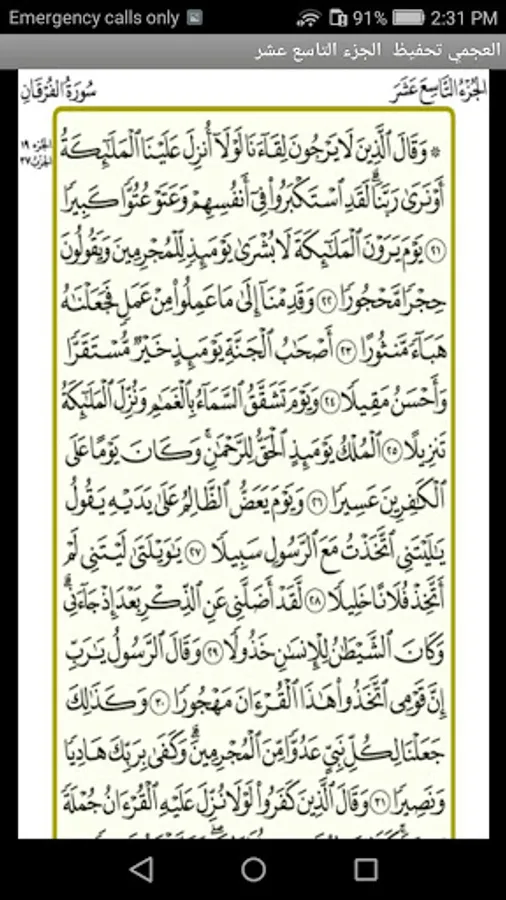 Emergency calls only 91% 2:31 PM
العجمي تحفيظ الجزء التاسع عشر
الجُزْءُ التَّاسِعَ عَشَرَ سُورَةُ الفُرْقَانِ
الجزء ١٩
الحزب ٣٧
* وَقَالَ ٱلَّذِينَ لَا يَرْجُونَ لِقَآءَنَا لَوْلَآ أُنزِلَ عَلَيْنَا ٱلْمَلَٰٓئِكَةُ
أَوْ نَرَىٰ رَبَّنَاۗ لَقَدِ ٱسْتَكْبَرُوا۟ فِىٓ أَنفُسِهِمْ وَعَتَوْ عُتُوًّا كَبِيرًا
٢١ يَوْمَ يَرَوْنَ ٱلْمَلَٰٓئِكَةَ لَا بُشْرَىٰ يَوْمَئِذٍ لِّلْمُجْرِمِينَ وَيَقُولُونَ
حِجْرًا مَّحْجُورًا ٢٢ وَقَدِمْنَآ إِلَىٰ مَا عَمِلُوا۟ مِنْ عَمَلٍ فَجَعَلْنَٰهُ
هَبَآءً مَّنثُورًا ٢٣ أَصْحَٰبُ ٱلْجَنَّةِ يَوْمَئِذٍ خَيْرٌ مُّسْتَقَرًّا
وَأَحْسَنُ مَقِيلًا ٢٤ وَيَوْمَ تَشَقَّقُ ٱلسَّمَآءُ بِٱلْغَمَٰمِ وَنُزِّلَ ٱلْمَلَٰٓئِكَةُ
تَنزِيلًا ٢٥ ٱلْمُلْكُ يَوْمَئِذٍ ٱلْحَقُّ لِلرَّحْمَٰنِۚ وَكَانَ يَوْمًا عَلَى
ٱلْكَٰفِرِينَ عَسِيرًا ٢٦ وَيَوْمَ يَعَضُّ ٱلظَّالِمُ عَلَىٰ يَدَيْهِ يَقُولُ
يَٰلَيْتَنِى ٱتَّخَذْتُ مَعَ ٱلرَّسُولِ سَبِيلًا ٢٧ يَٰوَيْلَتَىٰ لَيْتَنِى لَمْ
أَتَّخِذْ فُلَانًا خَلِيلًا ٢٨ لَّقَدْ أَضَلَّنِى عَنِ ٱلذِّكْرِ بَعْدَ إِذْ جَآءَنِىۗ
وَكَانَ ٱلشَّيْطَٰنُ لِلْإِنسَٰنِ خَذُولًا ٢٩ وَقَالَ ٱلرَّسُولُ يَٰرَبِّ
إِنَّ قَوْمِى ٱتَّخَذُوا۟ هَٰذَا ٱلْقُرْءَانَ مَهْجُورًا ٣٠ وَكَذَٰلِكَ
جَعَلْنَا لِكُلِّ نَبِىٍّ عَدُوًّا مِّنَ ٱلْمُجْرِمِينَۗ وَكَفَىٰ بِرَبِّكَ هَادِيًا
وَنَصِيرًا ٣١ وَقَالَ ٱلَّذِينَ كَفَرُوا۟ لَوْلَا نُزِّلَ عَلَيْهِ ٱلْقُرْءَانُ جُمْلَةً